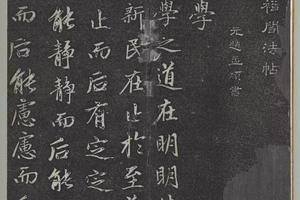 閣法帖
元趙孟頫書
學
學之道在明明
新民在止於至
止而后有定定
能靜靜而后能
而后能慮慮而